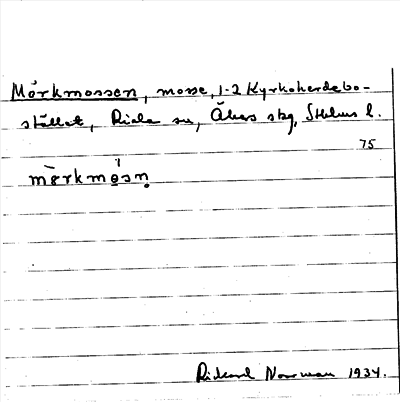 Mörkmossen, mosse, 1-2 Kyrkoherdebo-
stället, Riala sn, Åkers skg, Sthlms l.
75
mœ̀rkmo̤sn̥
Rickard Norrman 1934.